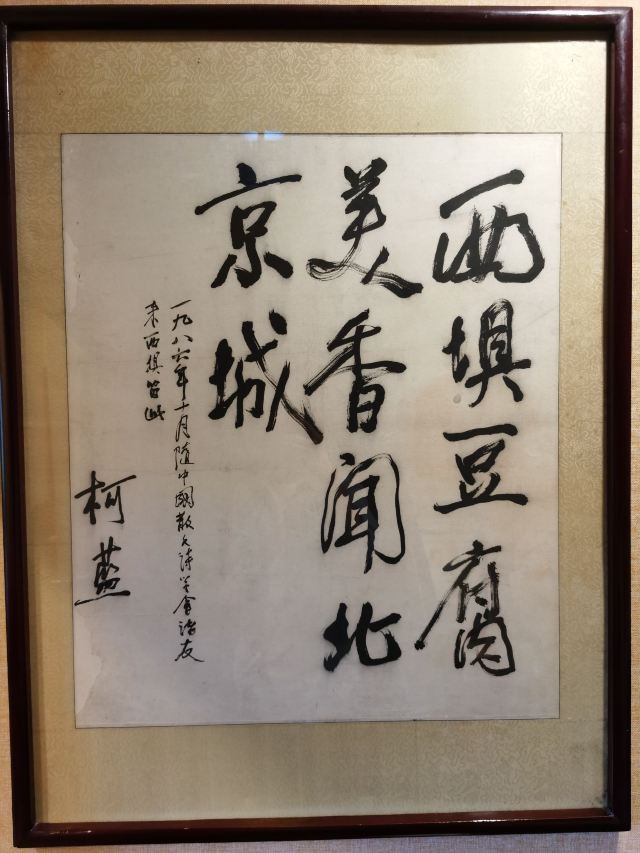 西垻豆腐
美香闻北
京城
一九八六年十月随中國散文诗学会诸友
来西垻留此
柯蓝